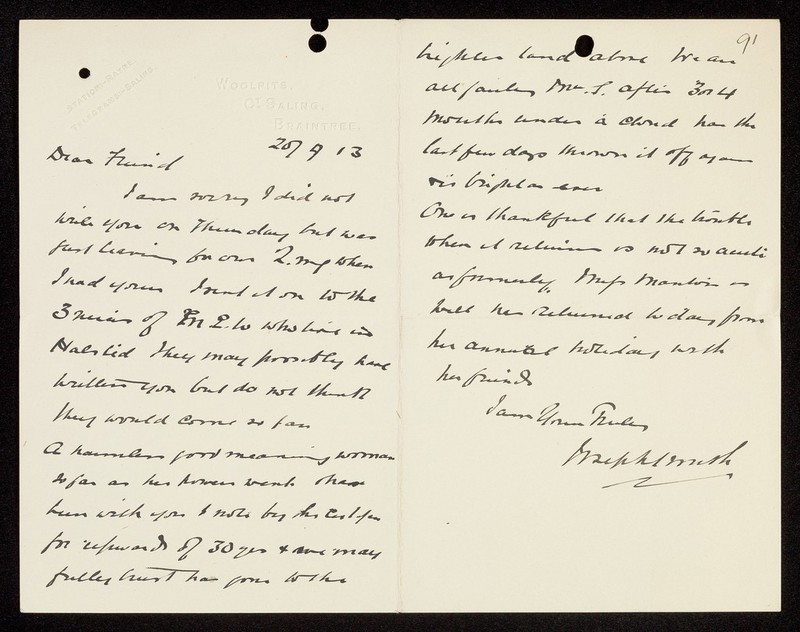 91
STATION-RAYNE.
TELEGRAMS-SALING.
WOOLPITS,
GT SALING,
BRAINTREE.
20/9 13
Dear Friend
I am sorry I did not
wire you on Thursday but was
just leaving for our Q. mg when
I had yours I sent it on to the
3 nieces of who live in
Halsted They may possibly have
written you but do not think
they would come so far
A harmless good meaning woman
so far as her powers went
been with you I note by the
for upwards of 30 yrs & we may
fully trust has gone to the
brighter land above We are
all Mr. S. after 3 or 4
months under a cloud has the
last few days thrown it off again
& is bright as ever
One is thankful that the trouble
when it returns is not so acute
as formerly. Miss is
well has returned to day from
her annual holiday with
her friends
I am Yours Truly
Joseph Smith